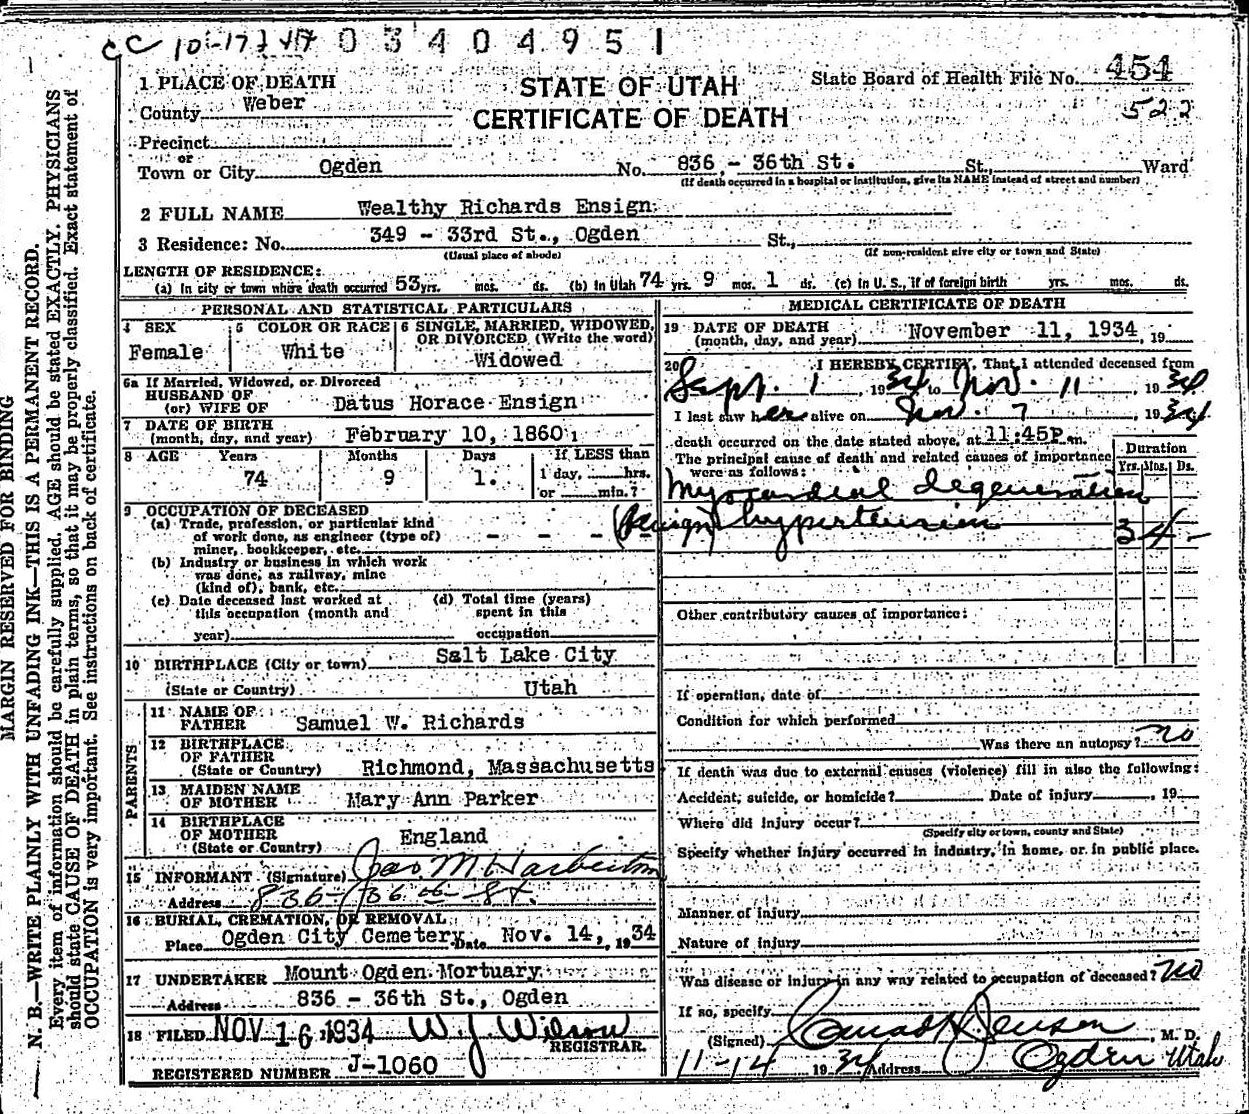 CC 10-17 03404951
1 PLACE OF DEATH
County Weber
STATE OF UTAH
CERTIFICATE OF DEATH
State Board of Health File No. 454
522
Precinct
or
Town or City Ogden No. 836 - 36th St. St., Ward
(If death occurred in a hospital or institution, give its NAME instead of street and number)
2 FULL NAME Wealthy Richards Ensign
3 Residence: No. 349 - 33rd St., Ogden St.,
(Usual place of abode) (If non-resident give city or town and State)
LENGTH OF RESIDENCE:
(a) In city or town where death occurred 53 yrs. mos. ds. (b) In Utah 74 yrs. 9 mos. 1 ds. (c) In U. S., if of foreign birth yrs. mos. ds.
PERSONAL AND STATISTICAL PARTICULARS
4 SEX
Female
5 COLOR OR RACE
White
6 SINGLE, MARRIED, WIDOWED,
OR DIVORCED (Write the word)
Widowed
6a If Married, Widowed, or Divorced
HUSBAND OF
(or) WIFE OF Datus Horace Ensign
7 DATE OF BIRTH
(month, day, and year) February 10, 1860
8 AGE Years Months Days If LESS than
74 9 1. 1 day, hrs.
or min.?
9 OCCUPATION OF DECEASED
(a) Trade, profession, or particular kind
of work done, as engineer (type of)
miner, bookkeeper, etc. - - - -
(b) Industry or business in which work
was done, as railway, mine
(kind of), bank, etc.
(c) Date deceased last worked at
this occupation (month and
year)
(d) Total time (years)
spent in this
occupation
10 BIRTHPLACE (City or town) Salt Lake City
(State or Country) Utah
PARENTS
11 NAME OF
FATHER Samuel W. Richards
12 BIRTHPLACE
OF FATHER
(State or Country) Richmond, Massachusetts
13 MAIDEN NAME
OF MOTHER Mary Ann Parker
14 BIRTHPLACE
OF MOTHER
(State or Country) England
15 INFORMANT (Signature) Jas. M. Harbertson
Address 836-36th St.
16 BURIAL, CREMATION, OR REMOVAL
Place Ogden City Cemetery Date Nov. 14, 1934
17 UNDERTAKER Mount Ogden Mortuary
Address 836 - 36th St., Ogden
18 FILED NOV 16 1934 W. J. Wilson
REGISTRAR.
REGISTERED NUMBER J-1060
MEDICAL CERTIFICATE OF DEATH
19 DATE OF DEATH
(month, day, and year) November 11, 1934, 19
20 I HEREBY CERTIFY, That I attended deceased from
Sept. 1, 1934 to Nov. 11, 1934
I last saw her alive on Nov. 7, 1934
death occurred on the date stated above, at 11:45P m.
The principal cause of death and related causes of importance
were as follows:
Duration
Yrs. Mos. Ds.
Myocardial degeneration
(Benign) hypertension 3 4 -
Other contributory causes of importance:
If operation, date of
Condition for which performed
Was there an autopsy? no
If death was due to external causes (violence) fill in also the following:
Accident, suicide, or homicide? Date of injury , 19
Where did injury occur?
(Specify city or town, county and State)
Specify whether injury occurred in industry, in home, or in public place.
Manner of injury
Nature of injury
Was disease or injury in any way related to occupation of deceased? no
If so, specify
(Signed) Conrad H. Jensen, M. D.
11-14 1934 Address Ogden Utah
MARGIN RESERVED FOR BINDING
N. B.—WRITE PLAINLY WITH UNFADING INK—THIS IS A PERMANENT RECORD.
Every item of information should be carefully supplied. AGE should be stated EXACTLY. PHYSICIANS
should state CAUSE OF DEATH in plain terms, so that it may be properly classified. Exact statement of
OCCUPATION is very important. See instructions on back of certificate.